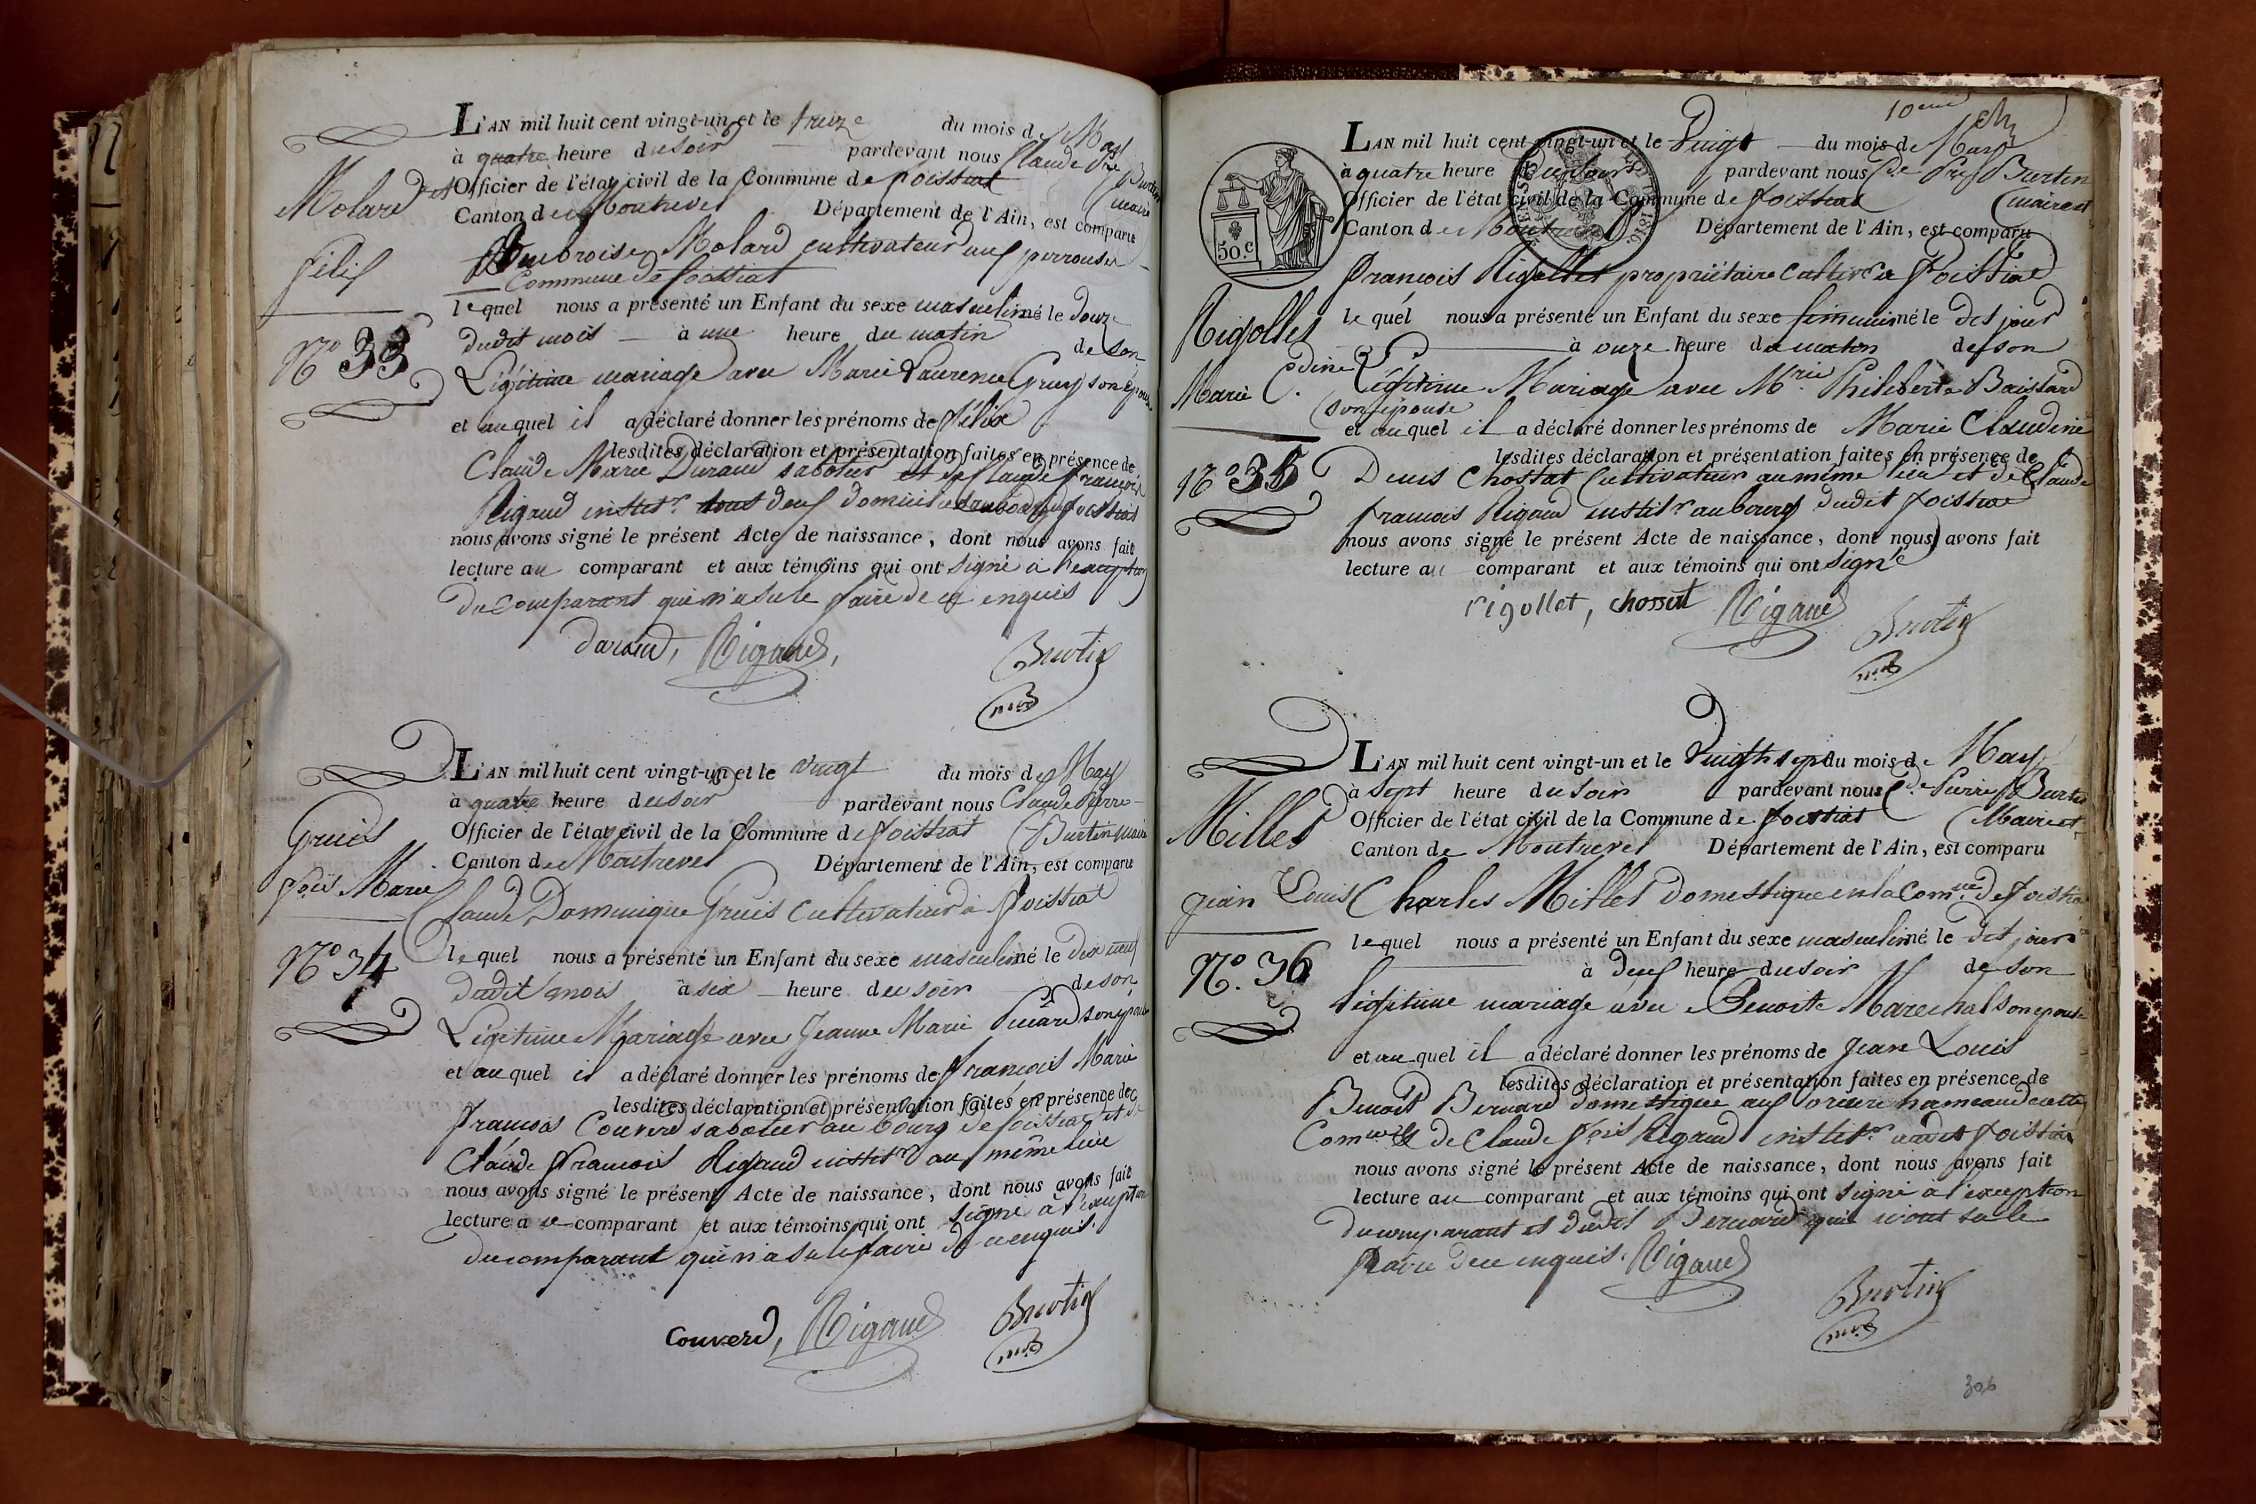 L'AN mil huit cent vingt-un et le treize du mois de May
à quatre heure du soir pardevant nous Claude Pre Burtin
Officier de l'état civil de la Commune de foissiat maire
Canton de Montrevel Département de l'Ain, est comparu
Molard
felix
N° 33
Ambroise Molard cultivateur aux perrouses
Commune de foissiat
lequel nous a présenté un Enfant du sexe masculin né le douze
dudit mois à une heure du matin de son
Légitime mariage avec Marie Laurence Gruy son épouse
et auquel il a déclaré donner les prénoms de félix
lesdites déclaration et présentation faites en présence de
Claude Marie Durand sabotier et de Claude françois
Rigaud instit.r tous deux domiciliés au bourg de foissiat
nous avons signé le présent Acte de naissance, dont nous avons fait
lecture au comparant et aux témoins qui ont signé à l'exception
du comparant qui n'a su le faire de ce enquis
durand, Rigaud, Burtin
L'AN mil huit cent vingt-un et le vingt du mois de May
à quatre heure du soir pardevant nous Claude Pierre
Officier de l'état civil de la Commune de foissiat Burtin maire
Canton de Montrevel Département de l'Ain, est comparu
Gruis
fçois Marie
N° 34
Claude Dominique Gruis Cultivateur à foissiat
lequel nous a présenté un Enfant du sexe masculin né le dix neuf
dudit mois à six heure du soir de son
Légitime Mariage avec Jeanne Marie Picard son épouse
et auquel il a déclaré donner les prénoms de françois Marie
lesdites déclaration et présentation faites en présence de
françois Couverd sabotier au bourg de foissiat et de
Claude françois Rigaud instit.r au même lieu
nous avons signé le présent Acte de naissance, dont nous avons fait
lecture a ce comparant et aux témoins qui ont signé à l'exception
du comparant qui n'a su le faire de ce enquis.
Couverd, Rigaud Burtin
10eme
50.c
1816
L'AN mil huit cent vingt-un et le Vingt du mois de May
à quatre heure du soir pardevant nous Cde Pre Burtin
Officier de l'état civil de la Commune de foissiat maire
Canton de Montrevel Département de l'Ain, est comparu
françois Rigollet propriétaire cultivr à foissiat
Rigollet
Marie C.dine
N° 35
lequel nous a présenté un Enfant du sexe feminin né le dit jour
à onze heure du matin de son
Légitime Mariage avec M.rie Philiberte Baissard
son épouse
et auquel il a déclaré donner les prénoms de Marie Claudine
lesdites déclaration et présentation faites en présence de
Denis Chossat Cultivateur au même lieu et de Claude
françois Rigaud instit.r au bourg dudit foissiat
nous avons signé le présent Acte de naissance, dont nous avons fait
lecture au comparant et aux témoins qui ont signé
rigollet, chossat Rigaud Burtin
L'AN mil huit cent vingt-un et le Vingt sept du mois de May
à sept heure du soir pardevant nous Cde Pierre Burtin
Officier de l'état civil de la Commune de foissiat Maire
Canton de Montrevel Département de l'Ain, est comparu
Millet
Jean Louis
N°. 36
Charles Millet domestique en la Comne de foissiat
lequel nous a présenté un Enfant du sexe masculin né le dit jour
à deux heure du soir de son
légitime mariage avec Benoite Marechal son epouse
et auquel il a déclaré donner les prénoms de Jean Louis
lesdites déclaration et présentation faites en présence de
Benoit Bernard domestique aux hameau de cette
Comne & de Claude fçois Rigaud instit.r audit foissiat
nous avons signé le présent Acte de naissance, dont nous avons fait
lecture au comparant et aux témoins qui ont signé à l'exception
du comparant et dudit Bernard qui n'ont su le
faire de ce enquis. Rigaud
Burtin
306